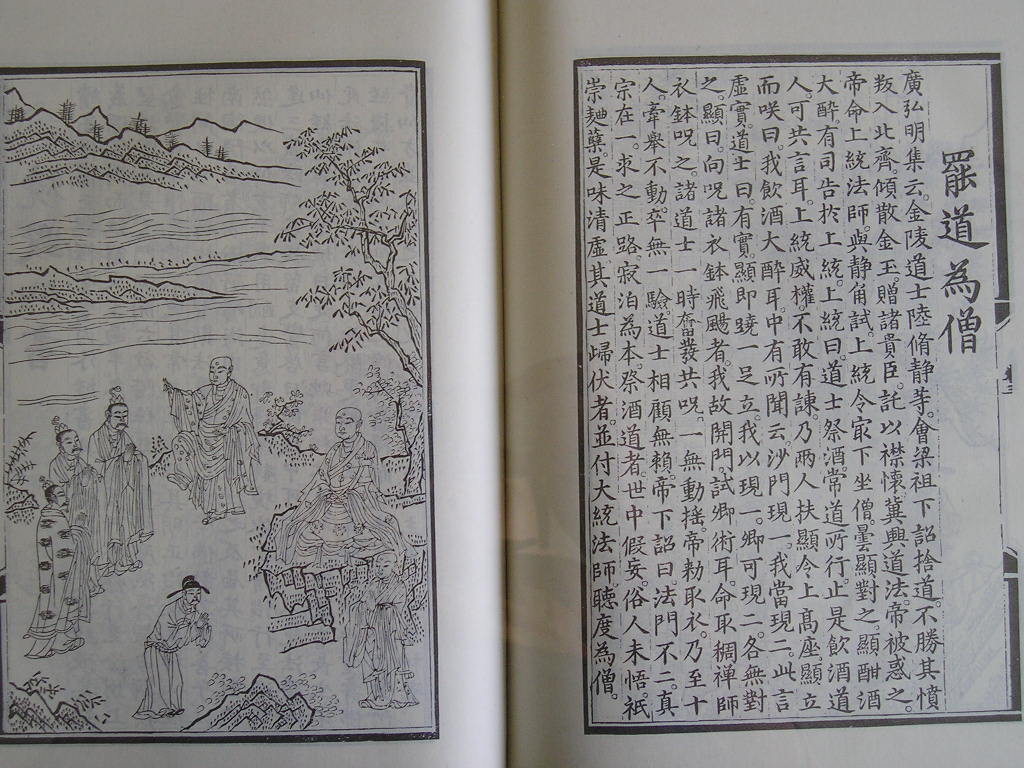 罷道為僧
廣弘明集云。金陵道士陸脩静等。會梁祖下詔捨道。不勝其憤
叛入此齊。傾散金玉。贈諸貴臣。託以襟懷。冀興道法。帝被惑之。
帝命上統法師。與静角試。上統令㝡下坐僧曇顯對之。顯酣酒
大醉。有司告於上統。上統曰。道士祭酒。常道所行。止是飲酒道
人。可共言耳。上統威權。不敢有諫。乃兩人扶顯令上髙座。顯立
而咲曰。我飲酒大醉耳。中有所聞云。沙門現一。我當現二。此言
虛實。道士曰。有實。顯即蹺一足立。我以現一。卿可現二。各無對
之。顯曰。向呪諸衣鉢飛颺者。我故開門試卿術耳。命取稠禅師
衣鉢呪之。諸道士一時奮發共呪。一無動摇。帝勑取衣。乃至十
人。牽舉不動。卒無一驗。道士相顧無賴。帝下詔曰。法門不二。真
宗在一。求之正路。寂泊為本。祭酒道者。世中假妄。俗人未悟。祇
崇麯糵。是味清虛。其道士歸伏者。並付大統法師聽度為僧。